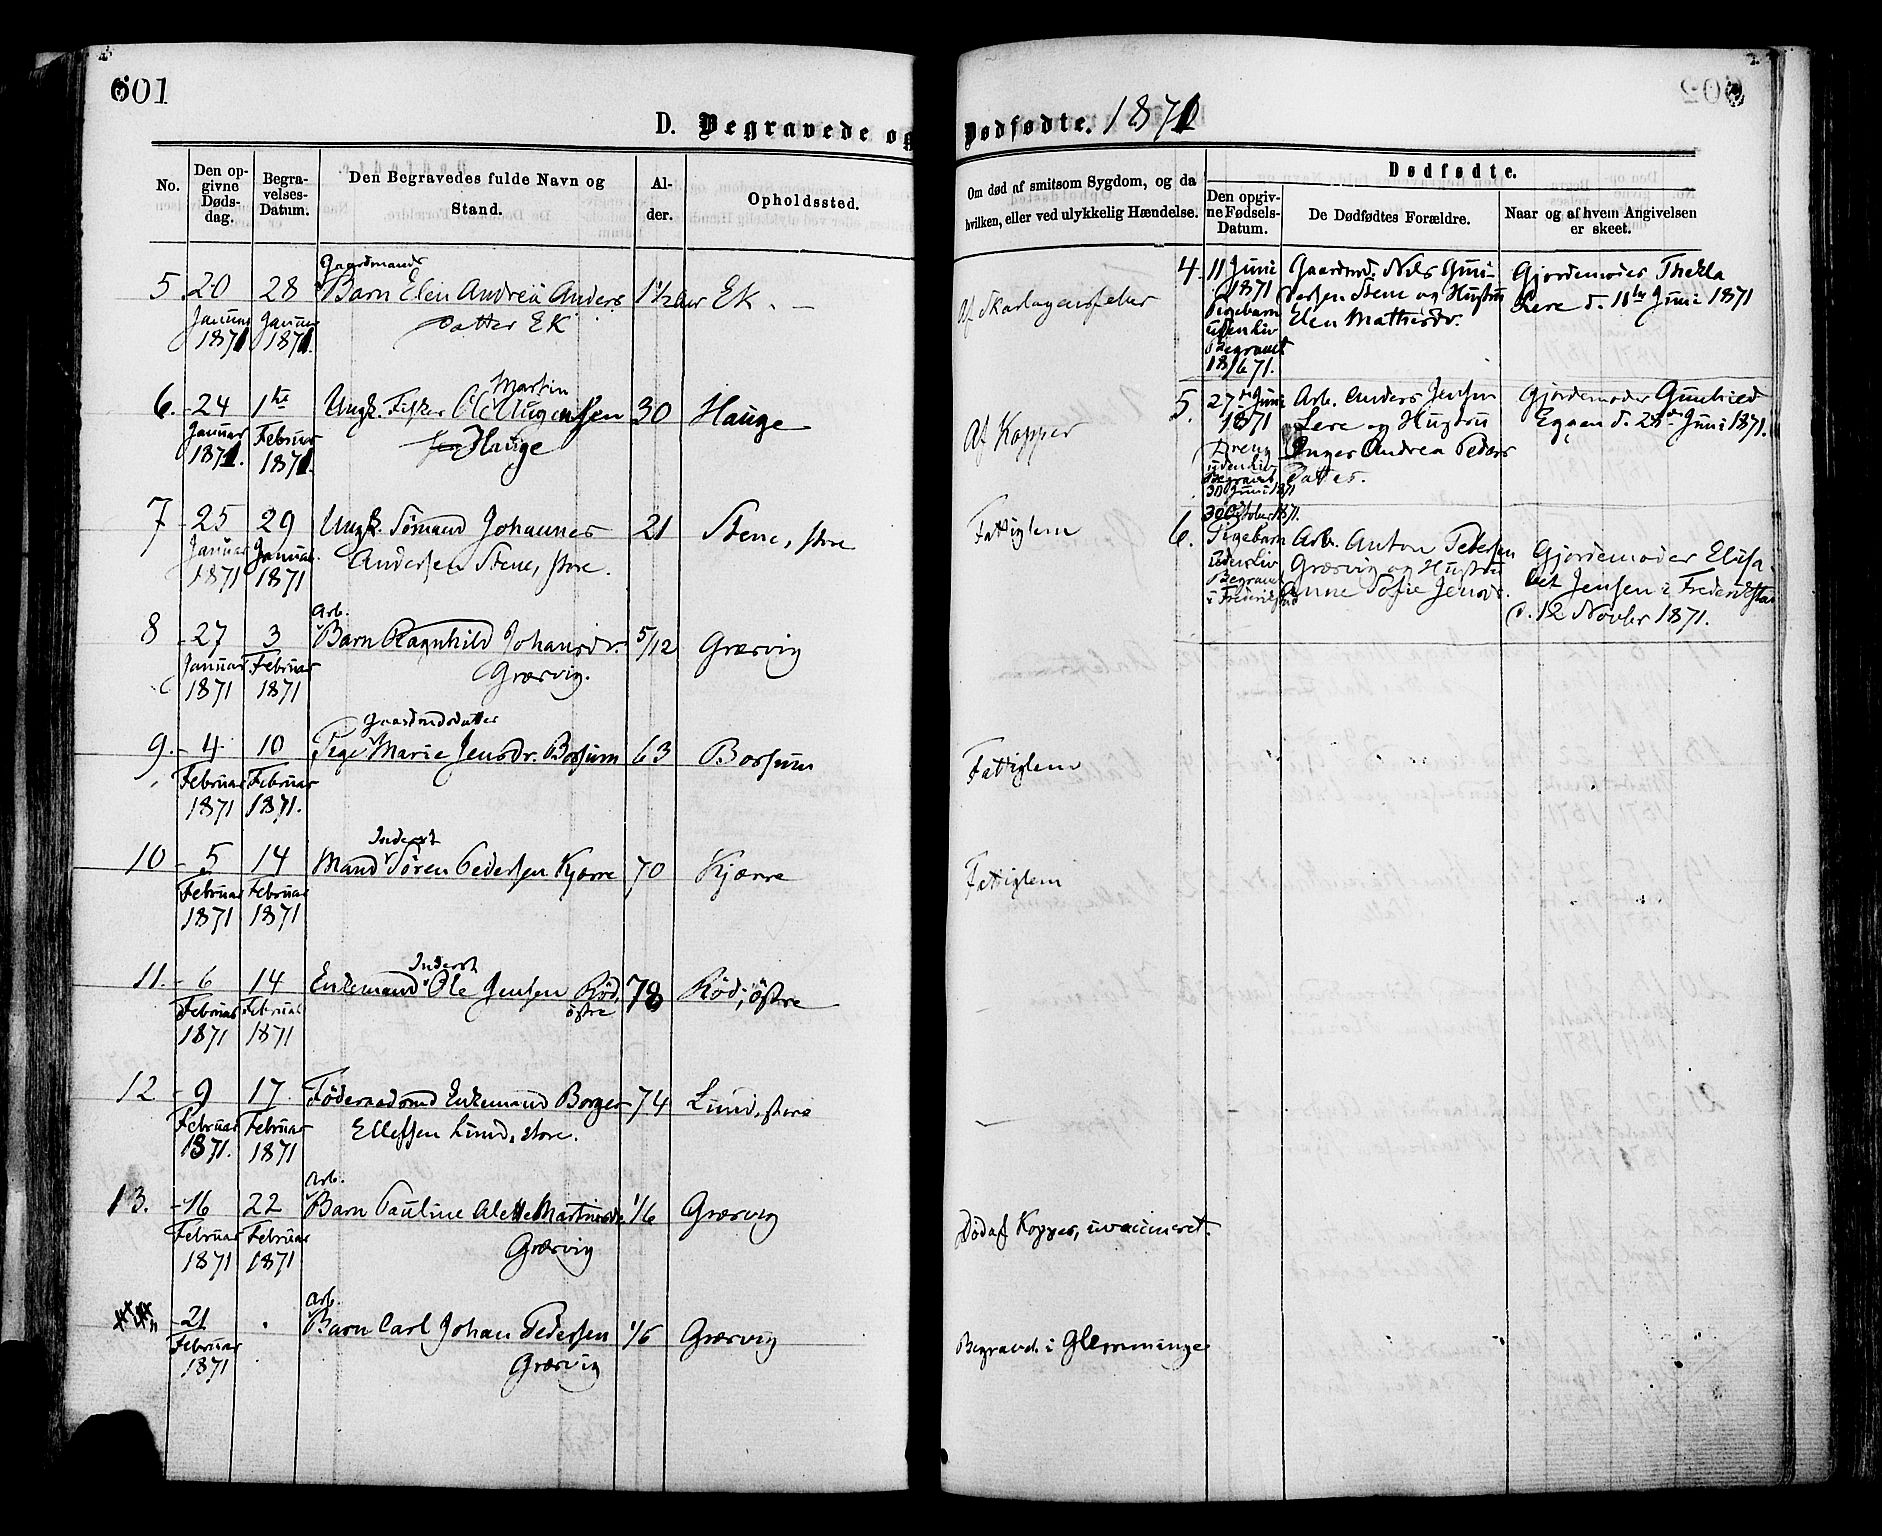 601
D. Begravede og Dødfødte. 1871
No.
Den opgivne Dødsdag.
Begravelses-Datum.
Den Begravedes fulde Navn og Stand.
Alder.
Opholdssted.
Om død af smitsom Sygdom, og da hvilken, eller ved ulykkelig Hændelse.
Dødfødte.
Den opgivne Fødsels-Datum.
De Dødfødtes Forældre.
Naar og af hvem Angivelsen er skeet.
5. 20 Januar 1871 28 Januar 1871.
Gaardmands
Barn Elen Andrea Anders
Datter EK
1 1/2 aar EK. —
Af Skarlagensfeber
6. 24 Januar 1871. 1ste Februar 1871.
Martin
Ungk. Fisker Ole Augensen
Hauge
30 Hauge
Af Kopper
7 - 25 Januar 1871 29 Januar 1871
Ungk. Sømand Johannes
Andersen Stene, store.
21 Stene, store
Fattiglem
8 - 27 Januar 1871 3 Februar 1871
Arb.
Barn Ragnhild Johansdr.
Grærvig.
5/12 Grærvig
9. - 4 Februar 1871 10 Februar 1871.
Gaardmdsdatter
Pige Marie Jensdr. Borsum
63 Borsum
Fattiglem
10 - 5 Februar 1871 14 Februar 1871
Inderst
Mand Søren Pedersen Kjærre
70 Kjærre
Fattiglem
11. - 6 Februar 1871 14 Februar 1871
Inderst
Enkemand Ole Jensen Rød,
østre
78 Rød, østre
—
12 - 9 Februar 1871. 17 Februar 1871
Føderaadsmd Enkemand Borger
Ellefsen Lund, store.
74 Lund, store
—
13. - 16 Februar 1871 22 Februar 1871
Arb.
Barn Pauline Alette Martinsdr.
Grærvig
1/6 Grærvig
Død af Kopper, uvaccineret.
- 21 Februar 1871
Arb.
Barn Carl Johan Pedersen
Grærvig
1/6 Grærvig
Begravet i Glemminge
4. 11 Juni
1871
Pigebarn
uden Liv
Begravet
18/6 71.
Gaardmd. Nils Gun-
dersen Stene og Hustru
Elen Mathisdr.
Gjordemoder Thekla
Lere d. 11te Juni 1871
5. 27de Juni
1871
Dreng
uden Liv
Begravet
30 Juni 1871
Arb. Anders Jensen
Lere og Hustru
Inger Andrea Peders
Datter.
Gjordemoder Gunhild
Egaen d. 28de Juni 1871.
6. 30 October 1871.
Pigebarn
uden Liv
Begravet
i Frederikstad
Arb. Anton Pedersen
Grærvig og Hustru
Anne Sofie Jensdr.
Gjordemoder Elisa-
bet Jensen i Frederikstad
d. 12 Novbr 1871.
602